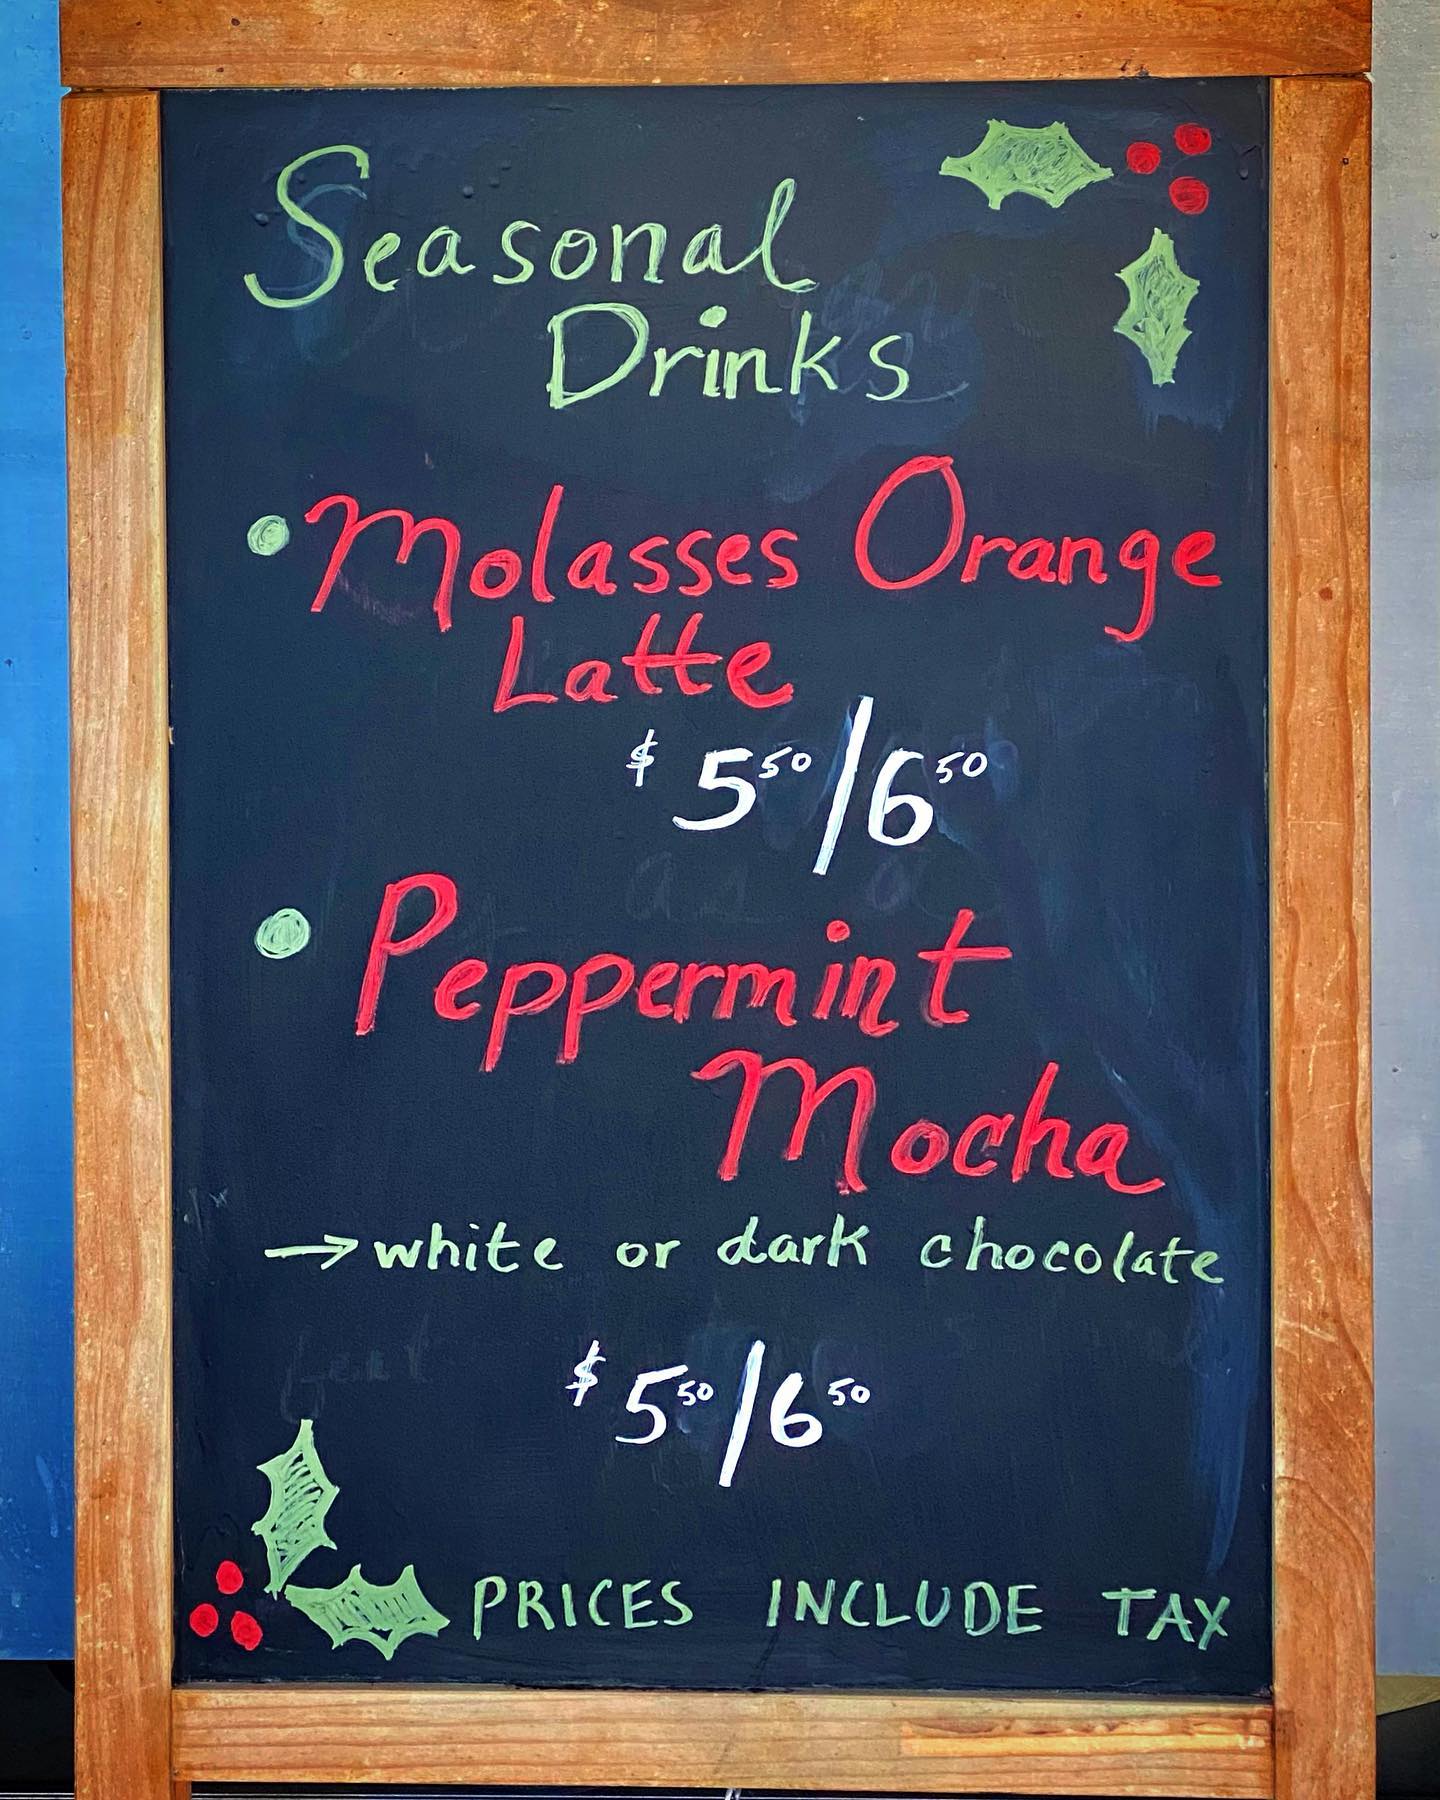 Seasonal
Drinks
• Molasses Orange
Latte
$ 5 50 / 6 50
• Peppermint
Mocha
→ white or dark chocolate
$ 5 50 / 6 50
PRICES INCLUDE TAX